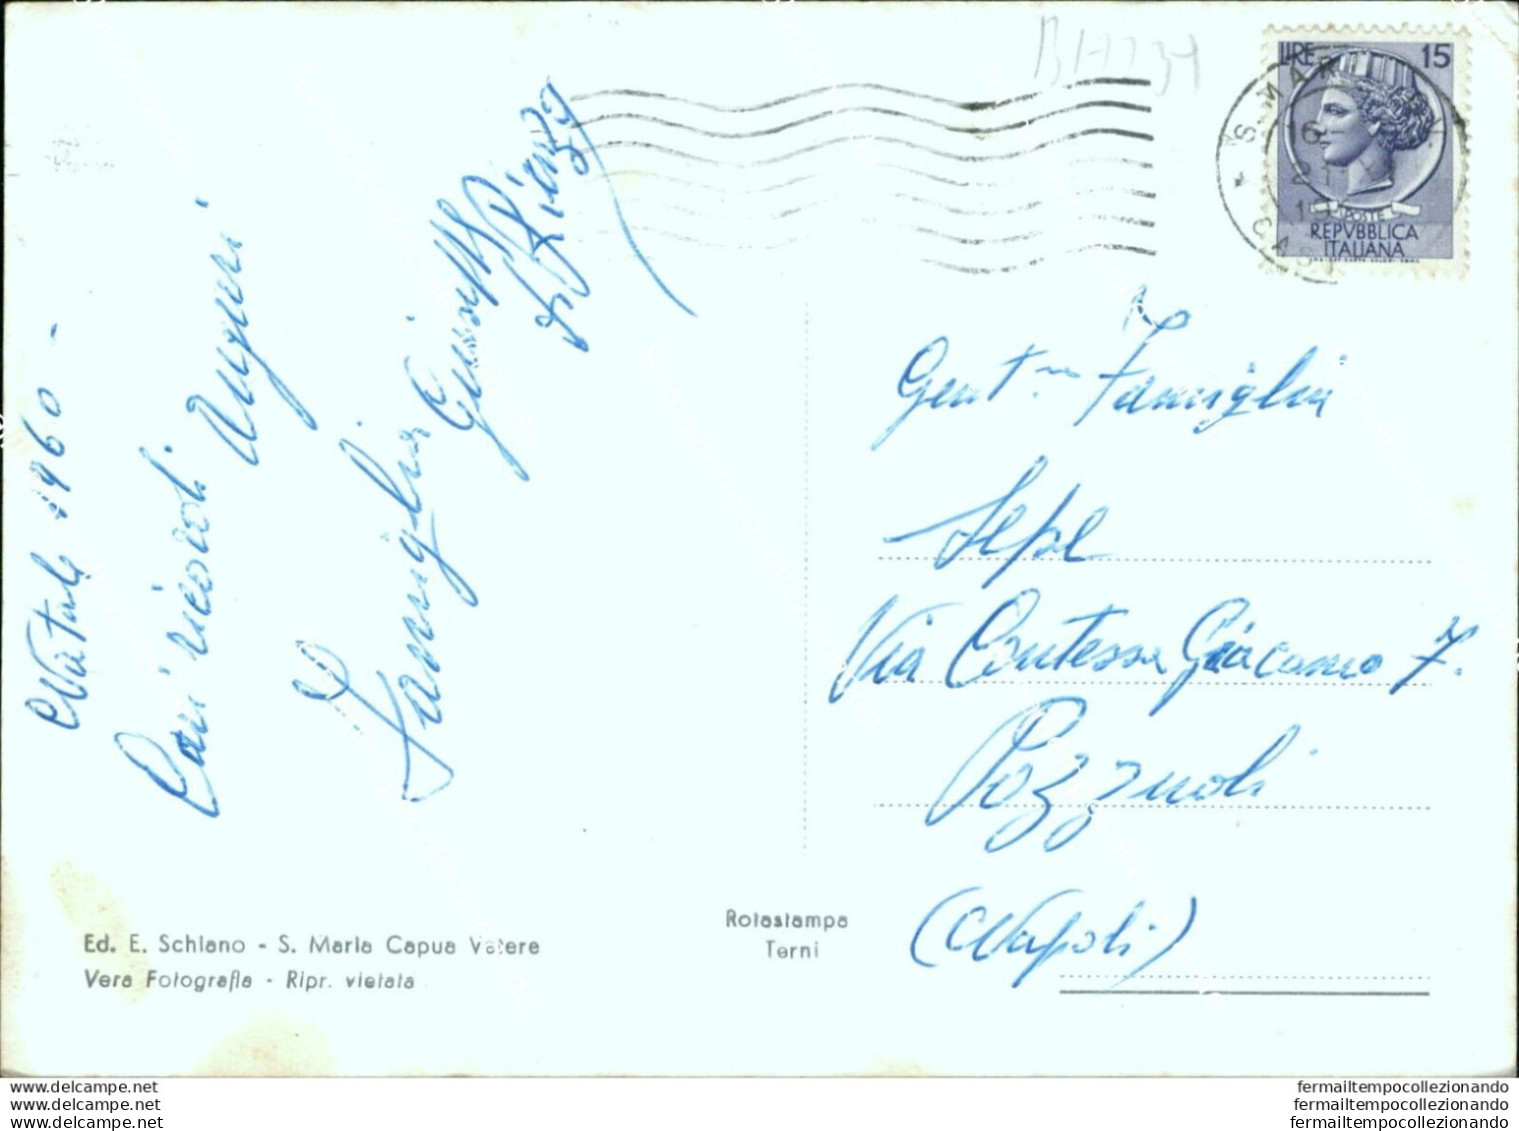 B17234
LIRE 15
S. MAR
16
21
CAS
POSTE
REPVBBLICA
ITALIANA
Natale 1960 -
Cari ricordi
Auguri
Famiglia Giuseppe
Di Rienzo
Gent.ma Famiglia
Sepe
Via Contessa Giacomo 7.
Pozzuoli
(Napoli)
Rotastampa
Terni
Ed. E. Schiano - S. Maria Capua Vetere
Vera Fotografia - Ripr. vietata
www.delcampe.net
www.delcampe.net
www.delcampe.net
fermailtempocollezionando
fermailtempocollezionando
fermailtempocollezionando